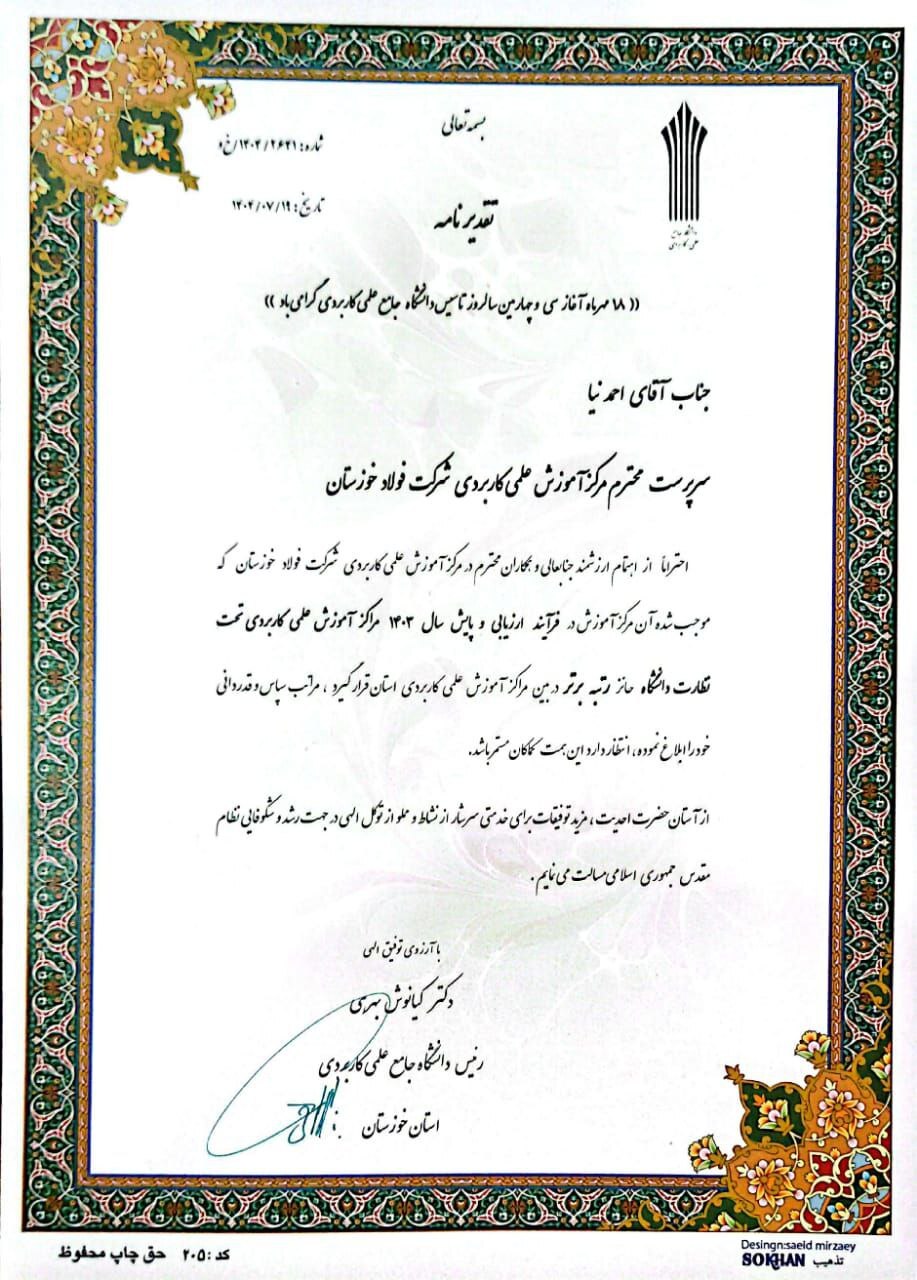 بسمه تعالی
شماره: ۱۴۰۴/۲۶۴۱/خ د
تاریخ: ۱۴۰۴/۰۷/۱۹
تقدیر نامه
(( ۱۸ مهرماه آغاز سی و چهارمین سالروز تاسیس دانشگاه جامع علمی کاربردی گرامی باد ))
جناب آقای احمد نیا
سرپرست محترم مرکز آموزش علمی کاربردی شرکت فولاد خوزستان
احتراماً از اهتمام ارزشمند جنابعالی و همکاران محترم در مرکز آموزش علمی کاربردی شرکت فولاد خوزستان که
موجب شده آن مرکز آموزش در فرآیند ارزیابی و پایش سال ۱۴۰۳ مراکز آموزش علمی کاربردی تحت
نظارت دانشگاه حائز رتبه برتر در بین مراکز آموزش علمی کاربردی استان قرار گیرد ، مراتب سپاس و قدردانی
خود را ابلاغ نموده، انتظار دارد این همت کماکان مستمر باشد.
از آستان حضرت احدیت ، مزید توفیقات برای خدمتی سرشار از نشاط و مملو از توکل الهی در جهت رشد و شکوفایی نظام
مقدس جمهوری اسلامی مسالت می نمایم .
با آرزوی توفیق الهی
دکتر کیانوش سهری
رئیس دانشگاه جامع علمی کاربردی
استان خوزستان
کد :۲۰۵ حق چاپ محفوظ
Desingn:saeid mirzaey
SOKHAN تذهیب